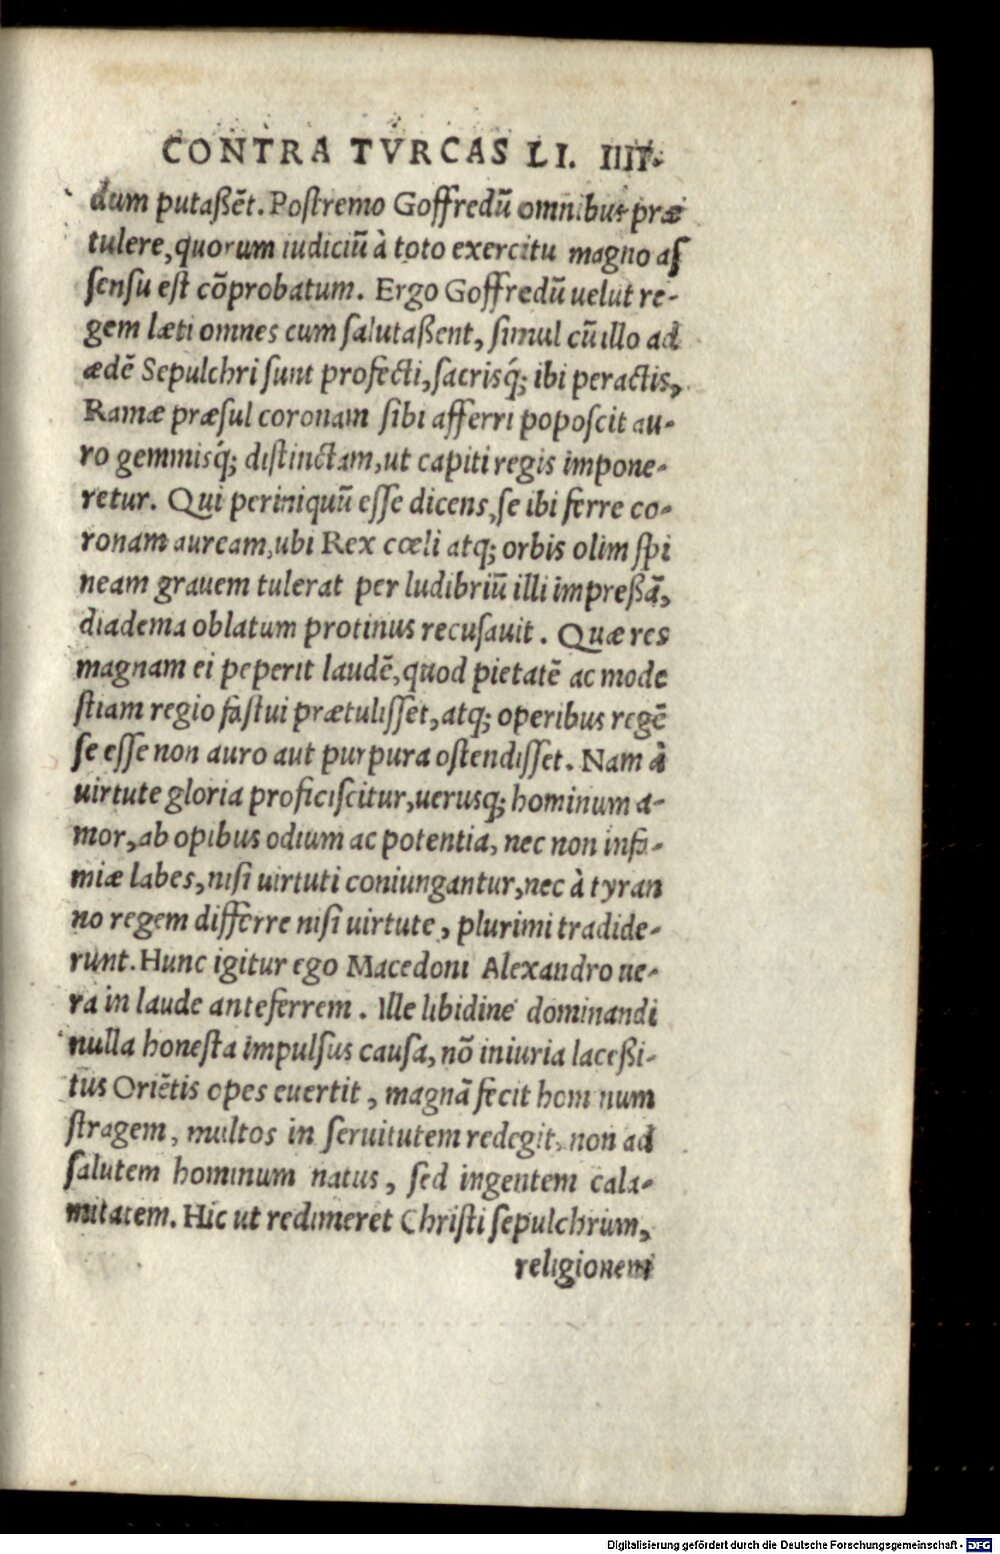 CONTRA TVRCAS LI. IIII.
dum putaßēt. Poſtremo Goffredū omnibus præ
tulere, quorum iudiciū à toto exercitu magno aſ
ſenſu eſt cōprobatum. Ergo Goffredū uelut re-
gem læti omnes cum ſalutaßent, ſimul cū illo ad
ædē Sepulchri ſunt profecti, ſacrisq́; ibi peractis,
Ramæ præſul coronam ſibi afferri popoſcit au-
ro gemmisq́; diſtinctam, ut capiti regis impone-
retur. Qui periniquū eſſe dicens, ſe ibi ferre co-
ronam auream, ubi Rex cœli atq; orbis olim ſpi
neam grauem tulerat per ludibriū illi impreßā,
diadema oblatum protinus recuſauit. Quæ res
magnam ei peperit laudē, quod pietatē ac mode
ſtiam regio faſtui prætuliſſet, atq; operibus regē
ſe eſſe non auro aut purpura oſtendiſſet. Nam à
uirtute gloria proficiſcitur, uerusq; hominum a-
mor, ab opibus odium ac potentia, nec non infa-
miæ labes, niſi uirtuti coniungantur, nec à tyran
no regem differre niſi uirtute, plurimi tradide-
runt. Hunc igitur ego Macedoni Alexandro ue-
ra in laude anteferrem. Ille libidine dominandi
nulla honeſta impulſus cauſa, nō iniuria laceßi-
tus Oriētis opes euertit, magnā fecit hominum
ſtragem, multos in ſeruitutem redegit, non ad
ſalutem hominum natus, ſed ingentem cala-
mitatem. Hic ut redimeret Chriſti ſepulchrum,
religionem
Digitalisierung gefördert durch die Deutsche Forschungsgemeinschaft - DFG